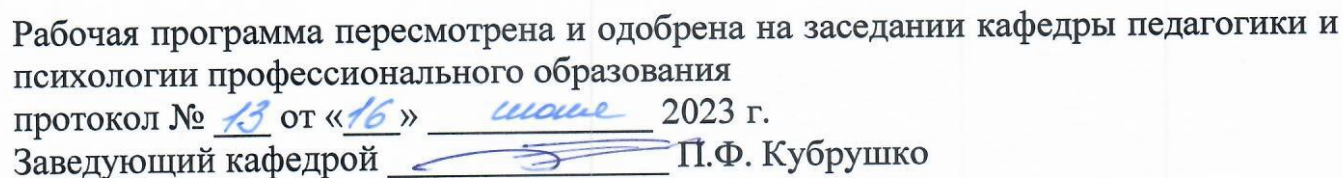 Рабочая программа пересмотрена и одобрена на заседании кафедры педагогики и
психологии профессионального образования
протокол № 13 от «16» 2023 г.
Заведующий кафедрой П.Ф. Кубрушко